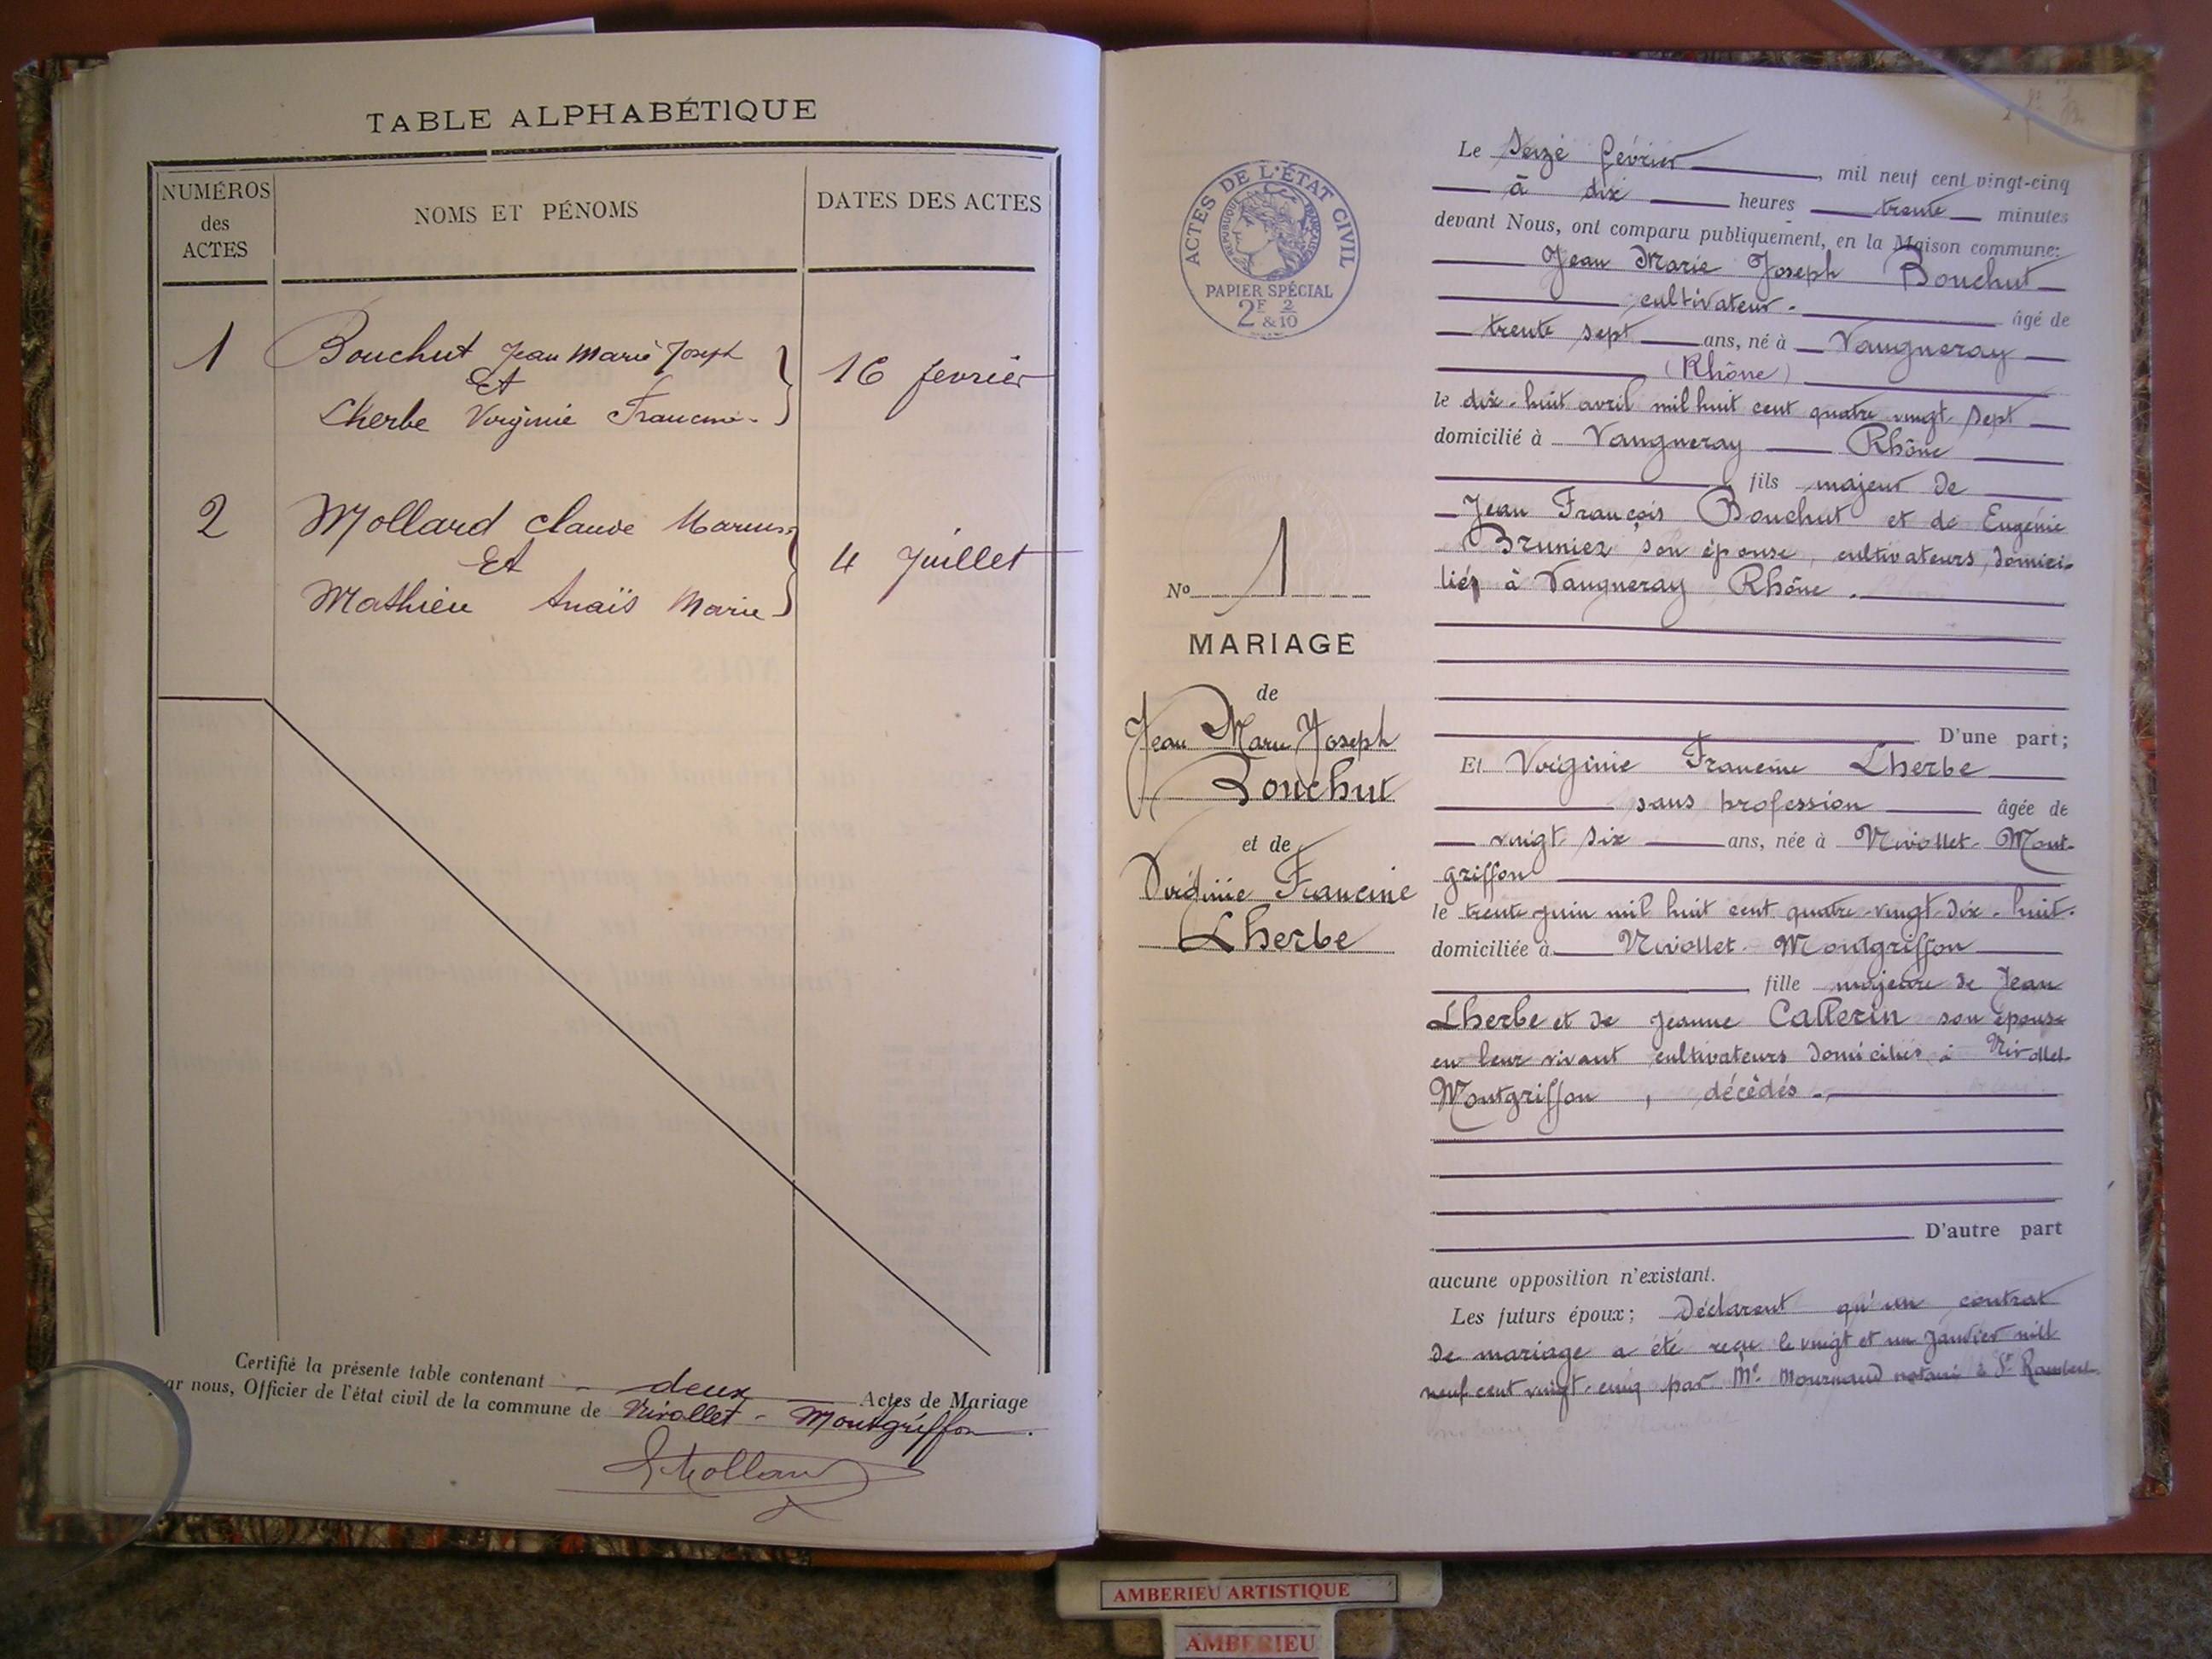 TABLE ALPHABÉTIQUE
NUMÉROS
des
ACTES
NOMS ET PÉNOMS
DATES DES ACTES
1
Bouchut Jean Marie Joseph
Et
Lherbe Virginie Francine
16 fevrier
2
Mollard Claude Marius
Et
Mathieu Anaïs Marie
4 Juillet
Certifié la présente table contenant deux Actes de Mariage
par nous, Officier de l'état civil de la commune de Nivollet - Montgriffon.
ACTES DE L'ÉTAT CIVIL
RÉPUBLIQUE FRANÇAISE
PAPIER SPÉCIAL
2F & 2/10
No 1
MARIAGE
de
Jean Marie Joseph
Bouchut
et de
Virginie Francine
Lherbe
Le Seize février, mil neuf cent vingt-cinq
à dix heures trente minutes
devant Nous, ont comparu publiquement, en la Maison commune:
Jean Marie Joseph Bouchut
cultivateur. âgé de
trente sept ans, né à Vaugneray
(Rhône)
le dix-huit avril mil huit cent quatre vingt sept
domicilié à Vaugneray Rhône
, fils majeur de
Jean François Bouchut et de Eugénie
Bruniez son épouse, cultivateurs, domici-
liés à Vaugneray, Rhône.
D'une part;
Et Virginie Francine Lherbe
sans profession âgée de
vingt six ans, née à Nivollet-Mont-
griffon
le trente juin mil huit cent quatre-vingt-dix-huit.
domiciliée à Nivollet-Montgriffon
, fille majeure de Jean
Lherbe et de Jeanne Callerin son épouse
en leur vivant cultivateurs domiciliés à Nivollet-
Montgriffon, décédés.
D'autre part
aucune opposition n'existant.
Les futurs époux; Déclarent qu'un contrat
de mariage a été reçu le vingt et un Janvier mil
neuf cent vingt-cinq par Me Mournaud notaire à St Rambert
AMBERIEU ARTISTIQUE
AMBERIEU